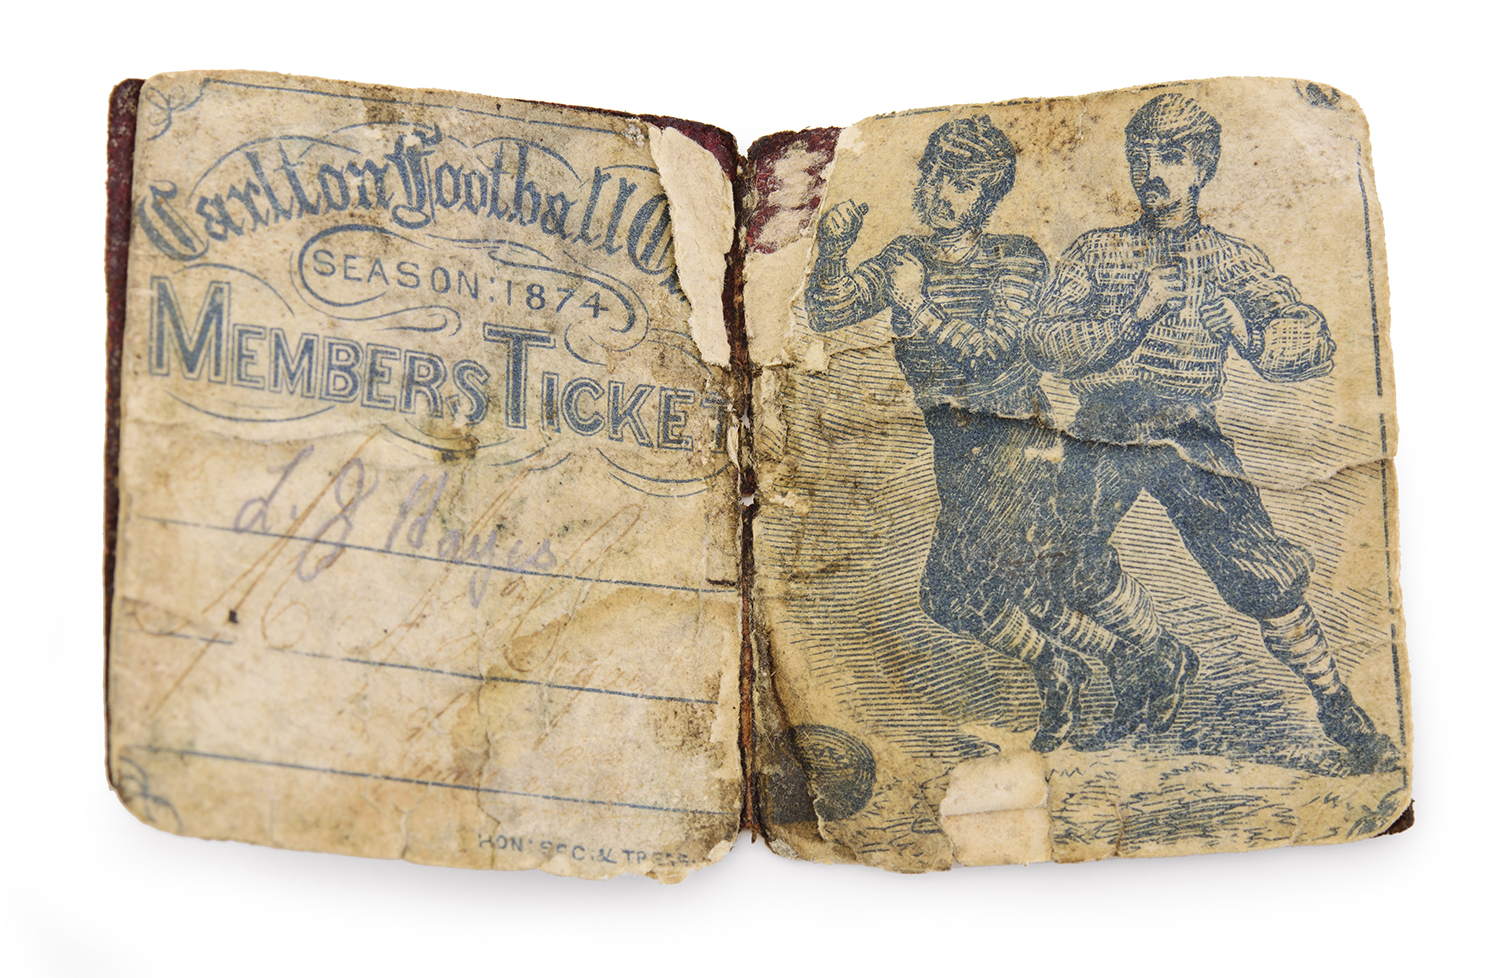 Carlton Football C
SEASON: 1874
MEMBERS TICKET
L. J Hayes
HON: SEC: & TREAS